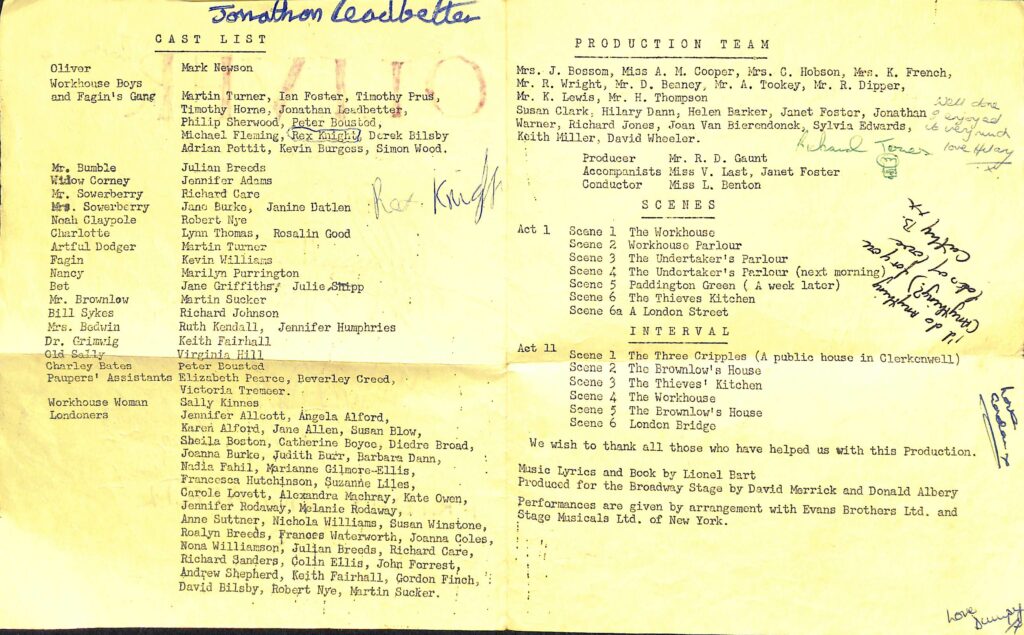 Jonathon Leadbetter
CAST LIST
Oliver Mark Newson
Workhouse Boys
and Fagin's Gang Martin Turner, Ian Foster, Timothy Prus,
Timothy Horne, Jonathan Leadbetter,
Philip Sherwood, Peter Boustod,
Michael Fleming, Rex Knight, Derek Bilsby
Adrian Pettit, Kevin Burgess, Simon Wood.
Mr. Bumble Julian Breeds
Widow Corney Jennifer Adams
Mr. Sowerberry Richard Care
Mrs. Sowerberry Jane Burke, Janine Datlen
Noah Claypole Robert Nye
Charlotte Lynn Thomas, Rosalin Good
Artful Dodger Martin Turner
Fagin Kevin Williams
Nancy Marilyn Purrington
Bet Jane Griffiths, Julie Shipp
Mr. Brownlow Martin Sucker
Bill Sykes Richard Johnson
Mrs. Bedwin Ruth Kendall, Jennifer Humphries
Dr. Grimwig Keith Fairhall
Old Sally Virginia Hill
Charley Bates Peter Bousted
Paupers' Assistants Elizabeth Pearce, Beverley Creed,
Victoria Tremeer.
Workhouse Woman Sally Kinnes
Londoners Jennifer Allcott, Angela Alford,
Karen Alford, Jane Allen, Susan Blow,
Sheila Boston, Catherine Boyce, Diedre Broad,
Joanna Burke, Judith Burr, Barbara Dann,
Nadia Fahil, Marianne Gilmore-Ellis,
Francesca Hutchinson, Suzanne Liles,
Carole Lovett, Alexandra Machray, Kate Owen,
Jennifer Rodaway, Melanie Rodaway,
Anne Suttner, Nichola Williams, Susan Winstone,
Roslyn Breeds, Frances Waterworth, Joanna Coles,
Nona Williamson, Julian Breeds, Richard Care,
Richard Sanders, Colin Ellis, John Forrest,
Andrew Shepherd, Keith Fairhall, Gordon Finch,
David Bilsby, Robert Nye, Martin Sucker.
Rex Knight
PRODUCTION TEAM
Mrs. J. Bossom, Miss A. M. Cooper, Mrs. C. Hobson, Mrs. K. French,
Mr. R. Wright, Mr. D. Beaney, Mr. A. Tookey, Mr. R. Dipper,
Mr. K. Lewis, Mr. H. Thompson
Susan Clark, Hilary Dann, Helen Barker, Janet Foster, Jonathan
Warner, Richard Jones, Joan Van Bierendonck, Sylvia Edwards,
Keith Miller, David Wheeler.
Well done
enjoyed
it very much
love Hilary
x
Richard Jones
Producer Mr. R. D. Gaunt
Accompanists Miss V. Last, Janet Foster
Conductor Miss L. Benton
SCENES
Act 1 Scene 1 The Workhouse
Scene 2 Workhouse Parlour
Scene 3 The Undertaker's Parlour
Scene 4 The Undertaker's Parlour (next morning)
Scene 5 Paddington Green ( A week later)
Scene 6 The Thieves Kitchen
Scene 6a A London Street
I'd do anything
(anything?) for you
lots of love
Cathy B. xx
INTERVAL
Act 11 Scene 1 The Three Cripples (A public house in Clerkenwell)
Scene 2 The Brownlow's House
Scene 3 The Thieves' Kitchen
Scene 4 The Workhouse
Scene 5 The Brownlow's House
Scene 6 London Bridge
love
We wish to thank all those who have helped us with this Production.
Music Lyrics and Book by Lionel Bart
Produced for the Broadway Stage by David Merrick and Donald Albery
Performances are given by arrangement with Evans Brothers Ltd. and
Stage Musicals Ltd. of New York.
Love